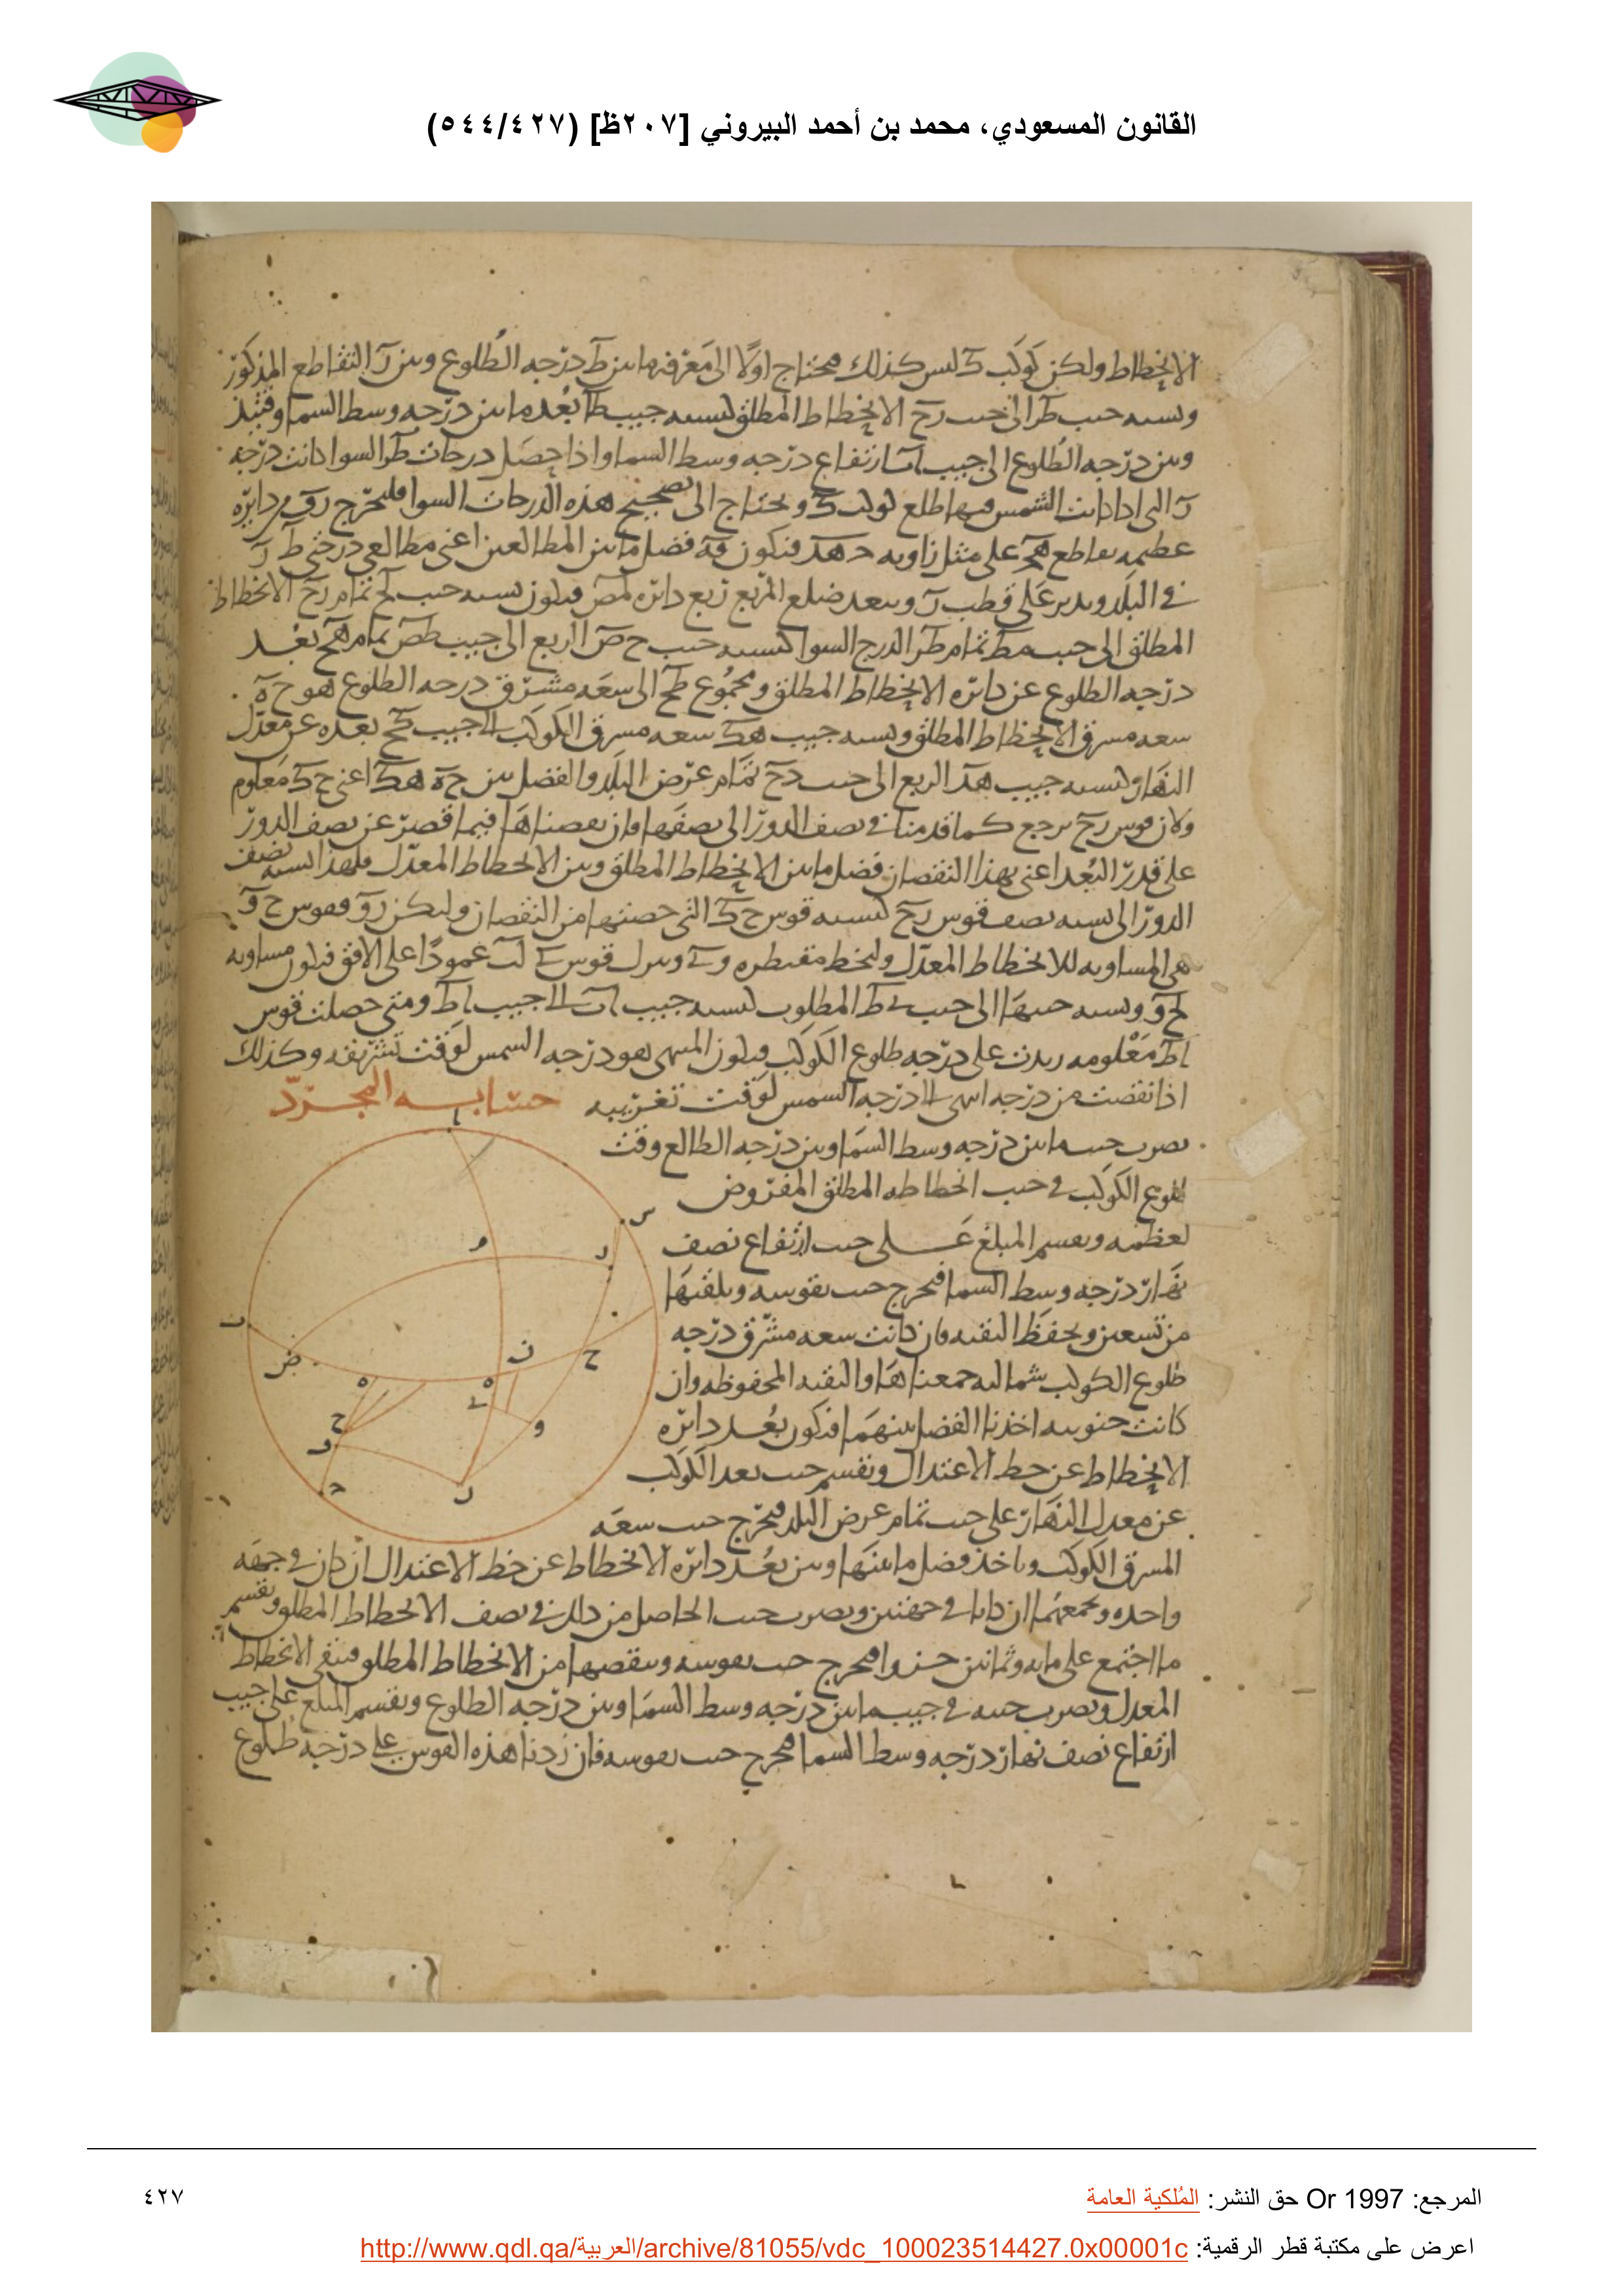 القانون المسعودي، محمد بن أحمد البيروني [٢٠٧ظ] (٥٤٤/٤٢٧)
الانحطاط ولكن كوكب ك ليس كذلك فنحتاج اولا الى معرفة ما بين ط درجه الطلوع وبين ر التقاطع المذكور
ونسبه جيب طر الى جيب رح الانحطاط المطلق كنسبه جيب طا بعد ما بين درجه وسط السما وقتئذ
وبين درجه الطلوع الى جيب اب ارتفاع درجه وسط السما واذا حصل درجات طر السوا كانت درجه
ر التى اذا كانت الشمس فيها طلع كوكب ك ونحتاج الى تصحيح هذه الدرجات السوا فليخرج رق من دايره
عظيمه يقاطع هح على مثل زاويه دهج فيكون قه فضل ما بين المطالعين اعنى مطالعى درجتى ط ر
فى البلد وندير على قطب ر وببعد ضلع المربع ربع دايره لمص فيكون نسبه جيب لح تمام رح الانحطاط
المطلق الى جيب مط تمام طر الدرج السوا كنسبه جيب ح ص الربع الى جيب طص تمام هح بعد
درجه الطلوع عن دايره الانحطاط المطلق ومجموع طح الى سعه مشرق درجه الطلوع هو ح ه
سعه مشرق الانحطاط المطلق ونسبه جيب هك سعه مشرق الكوكب الى جيب كح بعده عن معدل
النهار كنسبه جيب هد الربع الى جيب دح تمام عرض البلد والفضل بين ح ه هك اعنى ح ك معلوم
ولان قوس رح يرجع كما قدمنا فى نصف الدور الى نصفها فان نقصناها فيما قصر عن نصف الدور
على قدر البعد اعنى بهذا النقصان فضل ما بين الانحطاط المطلق وبين الانحطاط المعدل فلهذا نسبه نصف
الدور الى نسبه نصف قوس رح كنسبه قوس ح ك التى حصتها من النقصان وليكن رو فقوس ح و
هى المساويه للانحطاط المعدل ولنخط مقنطره وى وننزل قوس ى لب عمودا على الافق فيكون مساويه
لح و ونسبه جيبها الى جيب ى ط المطلوب كنسبه جيب اب الى جيب اط ومتى حصلت قوس
اط معلومه زيدت على درجه طلوع الكوكب فيكون المنتهى هو درجه الشمس لوقت تشريقه وكذلك
اذا نقصت من درجه انتهى الى درجه الشمس لوقت تغريبه حسابه المجرد
نضرب جيب ما بين درجه وسط السما وبين درجه الطالع وقت
طلوع الكوكب فى جيب انحطاطه المطلق المفروض
لعظمه ونقسم المبلغ على جيب ارتفاع نصف
نهار درجه وسط السما فيخرج جيب نقوسه ونلقيها
من تسعين ونحفظ البقيه فان كانت سعه مشرق درجه
طلوع الكوكب شماليه جمعناها والبقيه المحفوظه وان
كانت جنوبيه اخذنا الفضل بينهما فيكون بعد دايره
الانحطاط عن خط الاعتدال ونقسم جيب بعد الكوكب
عن معدل النهار على جيب تمام عرض البلد فيخرج جيب سعه
المشرق الكوكب وناخذ فضل ما بينها وبين بعد دايره الانحطاط عن خط الاعتدال ان كان فى جهه
واحده ونجمعهما ان كانا فى جهتين ونضرب جيب الحاصل من ذلك فى نصف الانحطاط المطلق ونقسم
ما اجتمع على مايه وثمانين جزوا فيخرج جيب نقوسه وننقصها من الانحطاط المطلق فيبقى الانحطاط
المعدل ونضرب جيبه فى جيب ما بين درجه وسط السما وبين درجه الطلوع ونقسم المبلغ على جيب
ارتفاع نصف نهار درجه وسط السما فيخرج جيب نقوسه فان زدنا هذه القوس على درجه طلوع
المرجع: Or 1997 حق النشر: المُلكية العامة
٤٢٧
اعرض على مكتبة قطر الرقمية: http://www.qdl.qa/العربية/archive/81055/vdc_100023514427.0x00001c